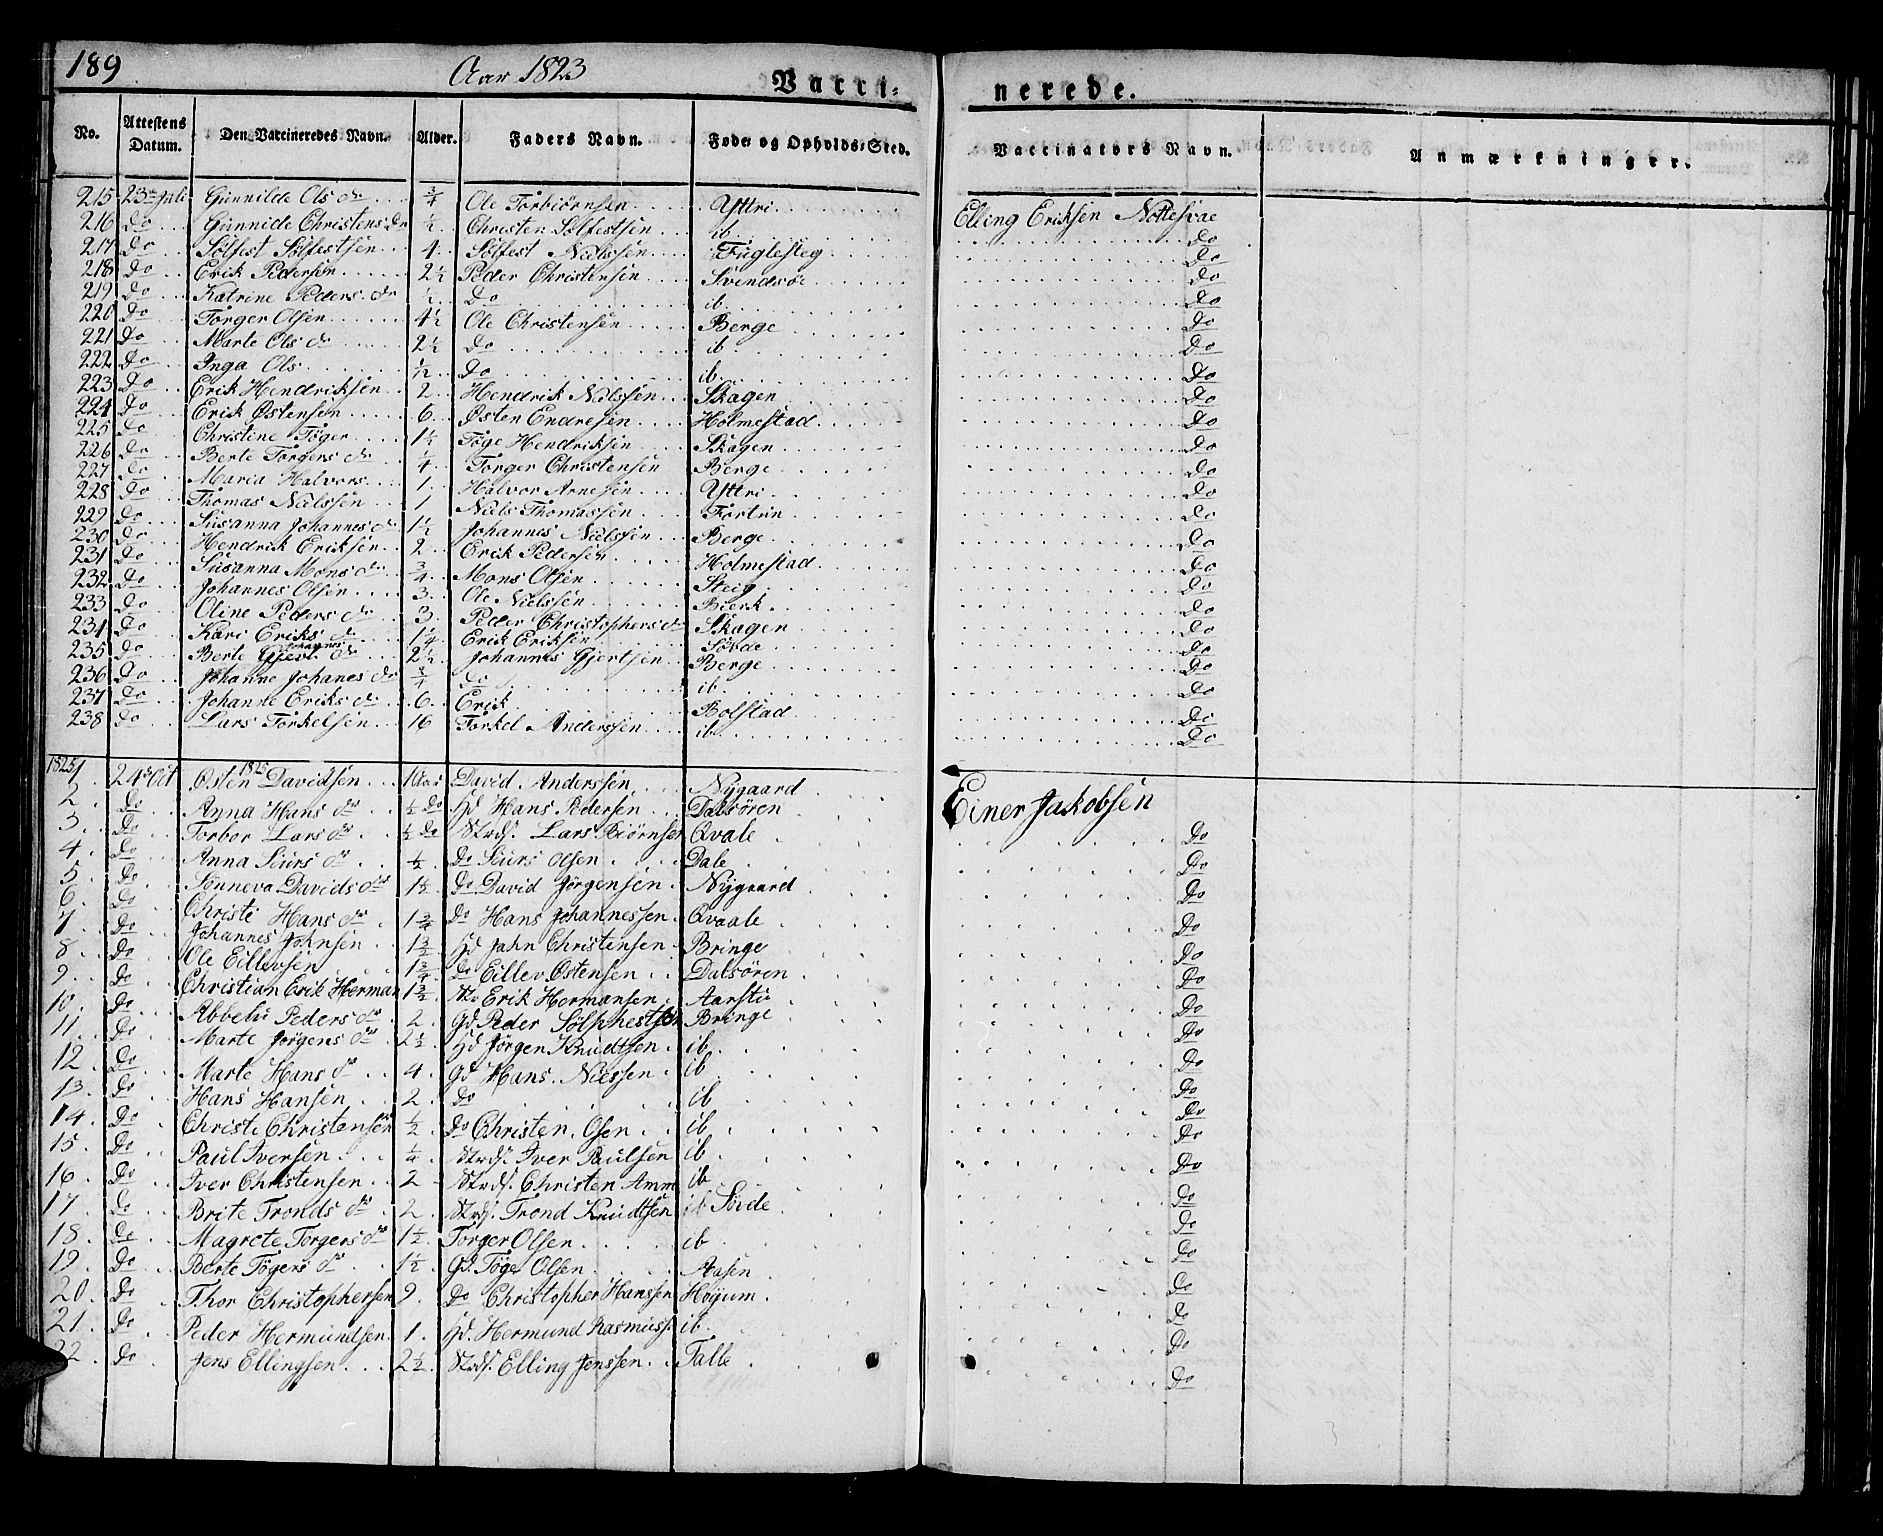 189 Aar 1823 Vacci= nerede.
No. Attestens Datum. Den Vaccineredes Navn. Alder. Faders Navn. Føde= og Opholds=Sted. Vaccinators Navn. Anmærkninger.
215 23de Juli Gunnilde Ols dr 3/4 Ole Torbiørnsen Yttri Elling Eriksen Nottesvae
216 Do Gunnide Christens Dr 1/2 Christen Sølfestsen ib. Do
217 Do Sølfest Sølfestsen 4 Sølfest Nielssen Fuglesteg Do
218 Do Erik Pedersen 2 1/2 Peder Christensen Svendsøe Do
219 Do Katrine Peders dr 1/2 Do ib. Do
220 Do Torger Olsen 4 1/2 Ole Christensen Berge Do
221 Do Marte Ols dr 2 1/2 Do ib. Do
222 Do Inga Ols 1/2 Do ib. Do
223 Do Erik Hendriksen 2 Hendrik Nielssen Skagen Do
224 Do Erik Østensen 6 Østen Endresen Holmestad Do
225 Do Christine Tøger 1 1/2 Tøge Hendriksen Skagen Do
226 Do Berte Torgers dr 1/4 Torger Christensen Berge Do
227 Do Maria Halvors 1 Halvor Arnesen Yttri Do
228 Do Thomas Nielssen 1 Niels Thomassen Fortun Do
229 Do Susanna Johannes dr 1 1/2 Johannes Nielssen Berge Do
230 Do Hendrik Eriksen 2 Erik Pedersen Holmestad Do
231 Do Susanna Mons dr 3/4 Mons Olsen Steig Do
232 Do Johannes Olsen 3 Ole Nielssen Bierk Do
233 Do Oline Peders dr 3 Peder Christophers dr Skagen Do
234 Do Kari Eriks dr 1 1/4 Erik Eriksen Søvde Do
235 Do Berte Johannes dr 2 1/2 Johannes Gjertsen Berge Do
236 Do Johanne Johanes dr 3/4 Do ib. Do
237 Do Johanne Eriks dr 6 Erik Bolstad Do
238 Do Lars Torkelsen 16 Torkel Anderssen ib Do
1825
1. 24de Oct Østen 1825 Davidsen 1 Aar David Anderssen Nygaard Einer Jakobsen
2. Do Anna Hans dr 1/2 Do Hd Hans Pedersen Dalsøren Do
3. Do Torbor Lars dr 1/2 Do Strds. Lars Biørnsen Qvale Do
4. Do Anna Siurs dr 1/2 Do Siurs Olsen Dale Do
5. Do Sønneva Davids dr 1 1/2 Do David Jørgensen Nygaard Do
6. Do Christi Hans dr 1 3/4 Do Hans Johannessen Qvaale Do
7. Do Johannes Johnsen 1 3/2 Hd John Christensen Bringe Do
8. Do Ole Eillevsen 1 3/4 Do Eillev Østensen Dalsøren Do
9. Do Christian Erik Herman 1 3/2 Str Erik Hermansen Aarstie Do
10. Do Abbelu Peders dr 2 Gd. Peder Sølphestsen Bringe Do
11. Do Marte Jørgens dr 2 1/2 Hd Jørgen Knudtsen ib Do
12 Do Marte Hans dr 4 Gd Hans Nielssen ib Do
13. Do Hans Hansen 2 Do ib Do
14. Do Christi Christensen 1/2 Do Christen Osen ib Do
15. Do Paul Iversen 1/4 Strds. Iver Paulsen ib Do
16. Do Iver Christensen 2 Strds. Christen Amm ib Do
17. Do Brite Tronds dr 2 Strds. Trond Knudtsen ib Søvde Do
18. Do Magrete Torgers dr 1 1/2 Torger Olsen ib Do
19. Do Berte Tøgers dr 1 1/2 Gd. Tøge Olsen Aasen Do
20. Do Thor Christophersen 9 Do Christopher Hanssen Høyum Do
21. Do Peder Hermundsen 1 Hd. Hermund Rasmuss ib Do
22. Do Jens Ellingsen 2 1/2 Strds. Elling Jenssen Talle Do